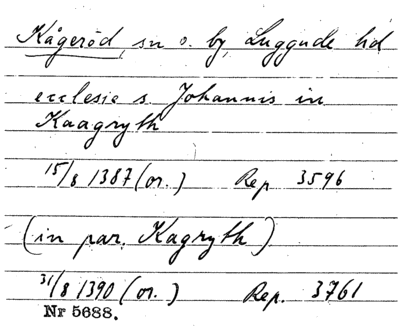 Kågeröd, sn o. by, Luggude hd
ecclesie s. Johannis in
Kaagryth
15/8 1387 (or.) Rep. 3596
(in par. Kagryth)
31/8 1390 (or.) Rep. 3761
Nr 5688.